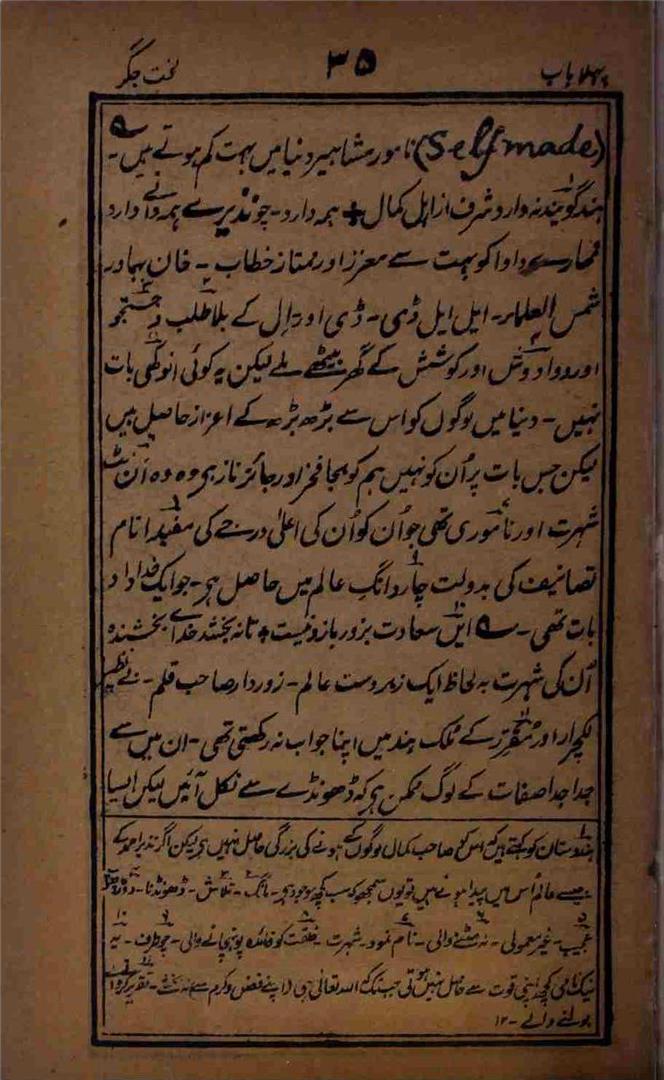 پہلا باب ۳۵ لخت جگر
(Self made) نامور مشاہیر دنیا میں بہت کم ہوتے ہیں۔ ؎
ہند گویند نہ دارد شرف از اہل کمال + ہمہ دارد۔ چو نذیرے ہمہ دانے دارد
تمھارے دادا کو بہت سے معزز اور ممتاز خطاب۔ خان بہادر
شمس العلماء۔ ایل ایل ڈی۔ ڈی او ایل کے بلا طلب و جستجو
اور دوادوش اور کوشش کے گھر بیٹھے ملے لیکن یہ کوئی انوکھی بات
نہیں۔ دنیا میں لوگوں کو اس سے بڑھ بڑھ کے اعزاز حاصل ہیں
لیکن جس بات پر اُن کو نہیں ہم کو بجا فخر اور جائز ناز ہی وہ وہ اَن مٹ
شہرت اور ناموری تھی جو اُن کو اُن کی اعلیٰ درجے کی مفید انام
تصانیف کی بدولت چار دانگ عالم میں حاصل ہی۔ جو ایک خداداد
بات تھی۔ ؎ ایں سعادت بزور بازو نیست + تا نہ بخشد خدائے بخشندہ
اُن کی شہرت بہ لحاظ ایک زبردست عالم۔ زوردار صاحب قلم۔ بے نظیر
لکچرار اور مقرر کے ملک ہند میں اپنا جواب نہ رکھتی تھی۔ ان میں سے
جدا جدا صفات کے لوگ ممکن ہی کہ ڈھونڈے سے نکل آئیں لیکن ایسا
ہندوستان کو کہتے ہیں کہ اس کو صاحب کمال لوگوں کے ہونے کی بزرگی حاصل نہیں ہی لیکن اگر نذیر احمد کے
جیسے عالم اُس میں پیدا ہونے ہیں تو یوں سمجھو کہ سب کچھ موجود ہی۔ مانگ۔ تلاش۔ ڈھونڈنا۔ دوڑ
عجیب۔ غیر معمولی۔ نہ مٹنے والی۔ نام نمود۔ شہرت۔ خلقت کو فائدہ پونہچانے والی۔ چوطرف۔ یہ
نیک نامی کچھ اپنی قوت سے حاصل نہیں ہوتی جب تک کہ اللہ تعالیٰ ہی (اپنے فضل و کرم سے) نہ بخشے۔ تقریر کرنے
بولنے والے۔ ۱۲